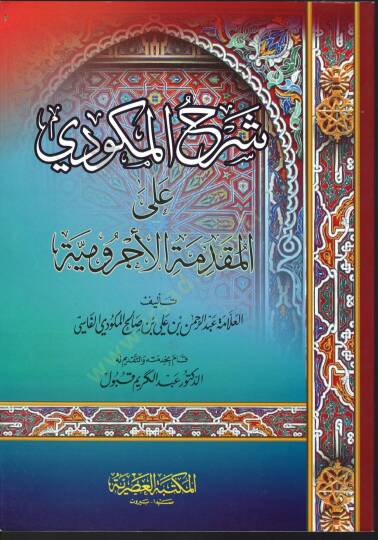 شرح المكودي
على
المقدمة الأجرومية
تأليف
العلامة عبد الرحمن بن علي بن صالح المكودي الفاسي
قام بخدمته والتقديم له
الدكتور عبد الكريم قبول
المكتبة العصرية
صيدا - بيروت